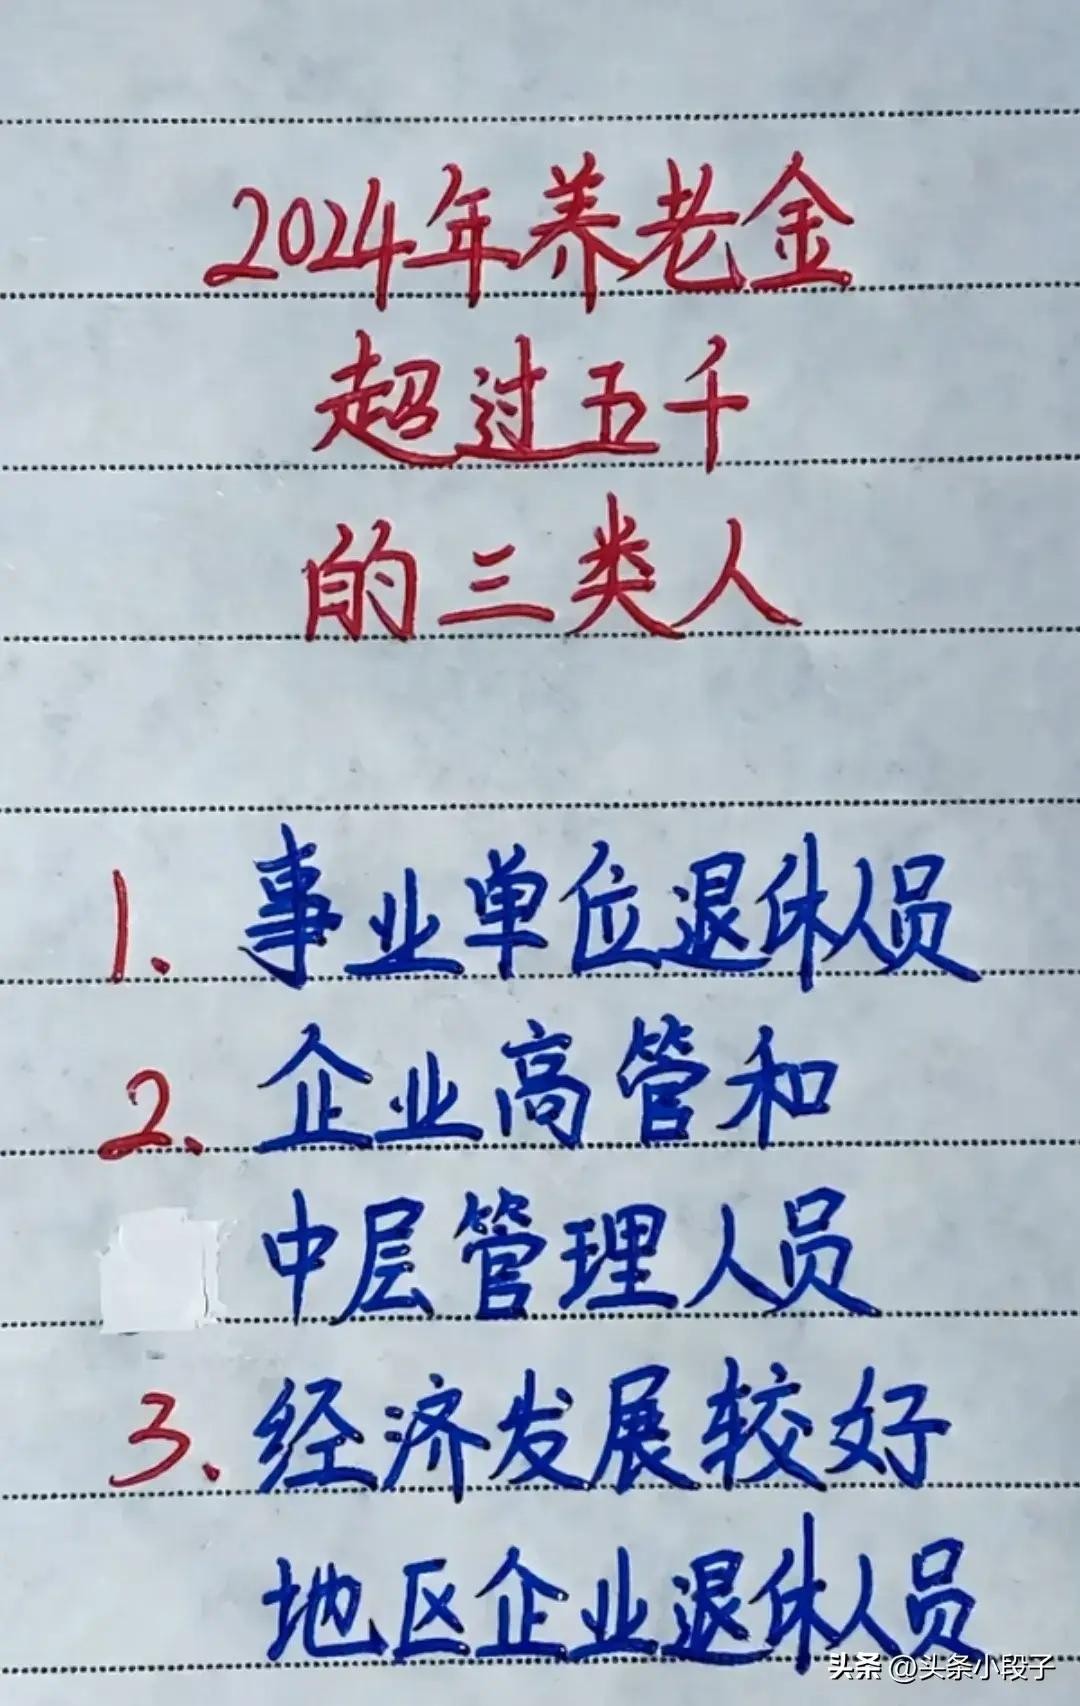 2024年养老金
超过五千
的三类人
1、事业单位退休人员
2、企业高管和
中层管理人员
3、经济发展较好
地区企业退休人员
头条 @头条小段子